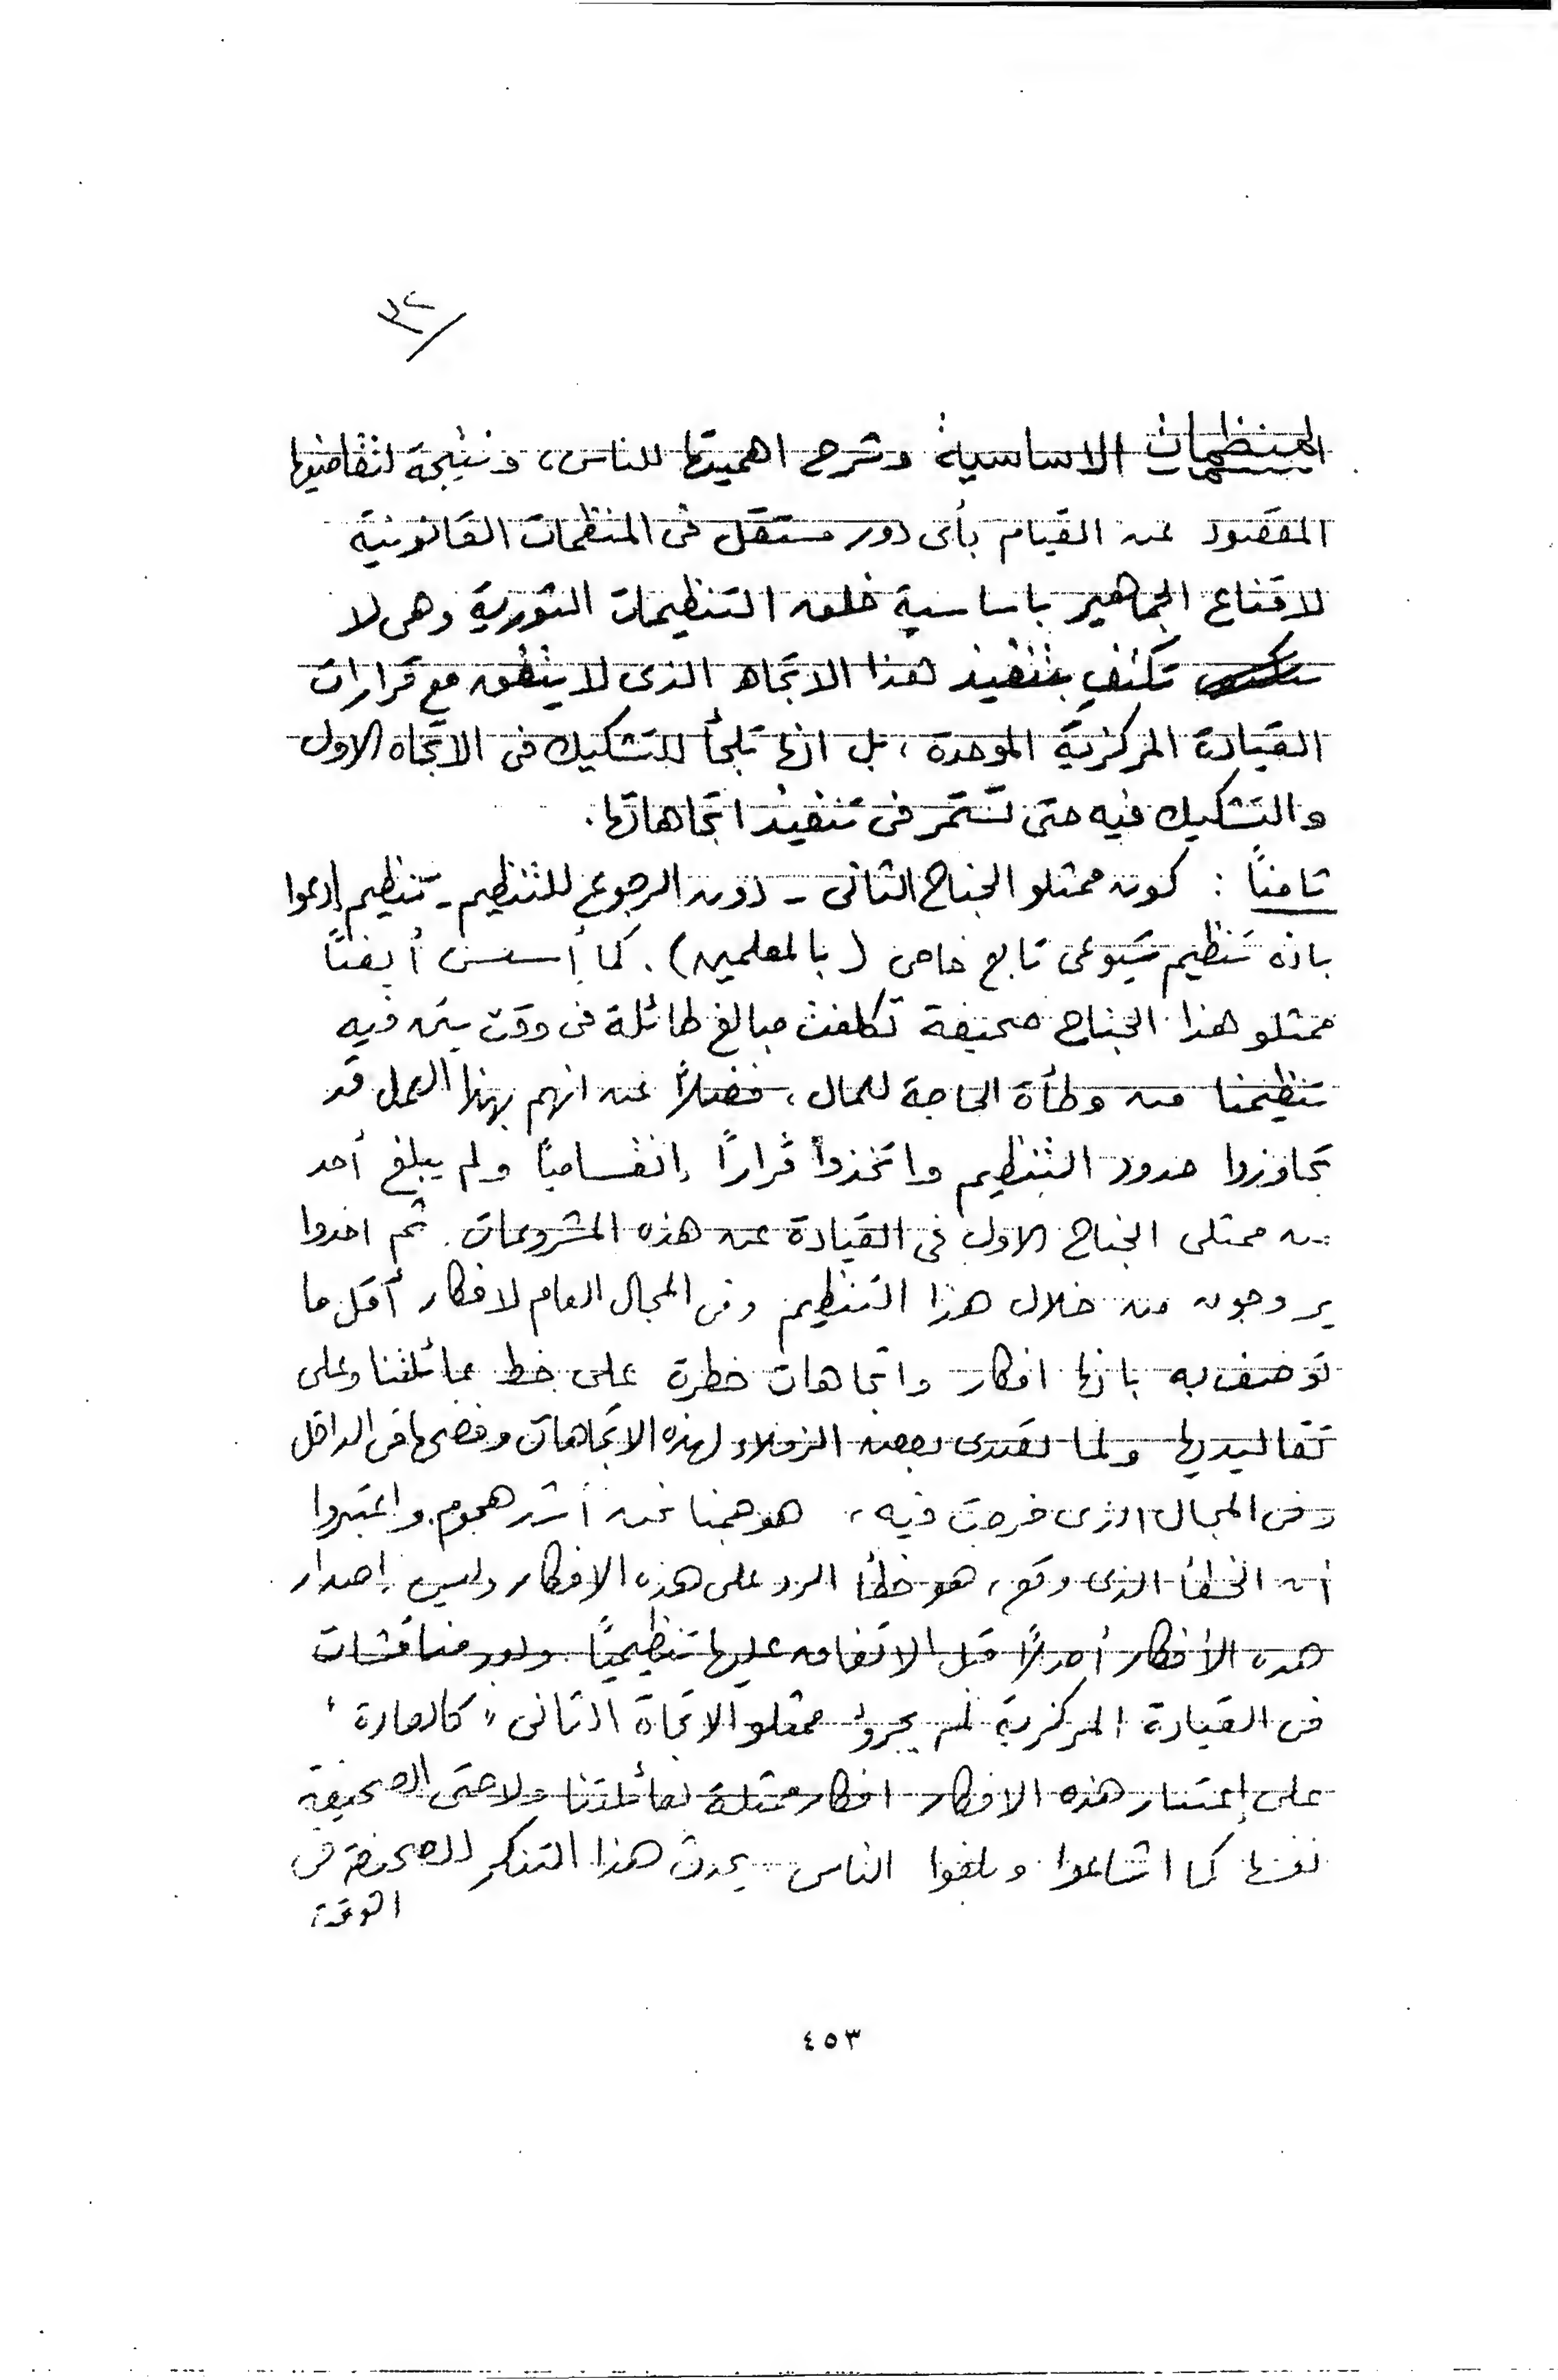 ٣٢
المنظمات الاساسية وشرح اهميتها للناس، ونتيجة لتقاضيها
المقصود عن القيام بأى دور مستقل فى المنظمات القانونية
لاقناع الجماهير باساسية خلق التنظيمات الثورية وهى لا
تكتفى بتنفيذ هذا الاتجاه الذى لا يتفق مع قرارات
القيادة المركزية الموحدة، بل انها تلجأ للتشكيك فى الاتجاه الاول
والتشكيك فيه حتى تستمر فى تنفيذ اتجاهاتها.
ثامناً : كون ممثلو الجناح الثانى - دون الرجوع للتنظيم - تنظيم إدعوا
بانه تنظيم شيوعى تابع خاص (بالمعلمين). كما أسس أيضاً
ممثلو هذا الجناح صحيفة تكلفت مبالغ طائلة فى وقت يئن فيه
تنظيمنا من وطأة الحاجة للمال، فضلاً عن انهم بهذا العمل قد
تجاوزوا حدود التنظيم واتخذوا قراراً إنقسامياً ولم يبلغ أحد
من ممثلى الجناح الاول فى القيادة عن هذه المشروعات. ثم اخذوا
يروجون من خلال هذا التنظيم وفى المجال العام لافكار أقل ما
توصف به بانها افكار واتجاهات خطرة على خط عائلتنا وعلى
تقاليديها ولما تصدى بعض الزملاء لهذه الاتجاهات وفضحها فى الداخل
وفى المجال الذى خرجت فيه، هوجمنا نحن أشد هجوم. واعتبروا
أن الخطأ الذى وقع، هو خطأ الرد على هذه الافكار وليس إصدار
هذه الأفكار أصلاً قبل الاتفاق عليها تنظيمياً. وبعد مناقشات
فى القيادة المركزية لم يجرؤ ممثلو الاتجاة الثانى "كالعادة"
على إعتبار هذه الافكار افكار ممثلة لعائلتنا ولا حتى الصحيفة
نفسها كما اشاعوا وبلغوا الناس يحدث هذا التنكر للصحيفة فى
الوقت
٤٥٣